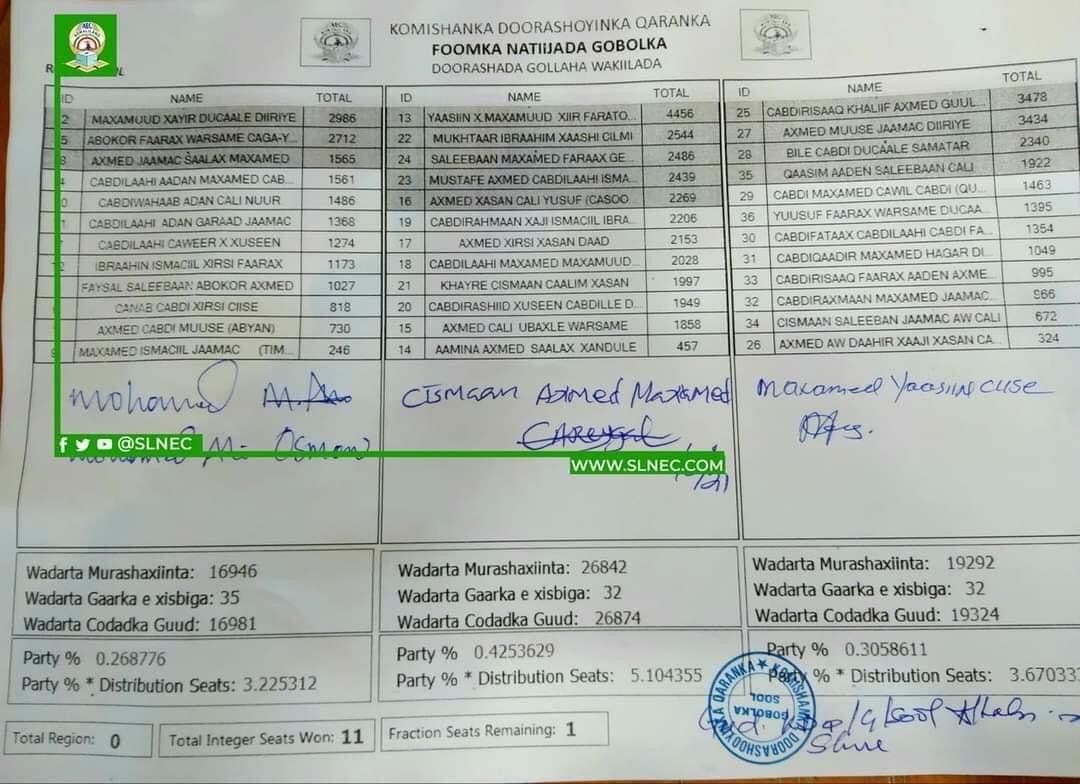 KOMISHANKA DOORASHOYINKA QARANKA
FOOMKA NATIIJADA GOBOLKA
DOORASHADA GOLLAHA WAKIILADA
ID NAME TOTAL
2 MAXAMUUD XAYIR DUCAALE DIIRIYE 2986
5 ABOKOR FAARAX WARSAME CAGA-Y... 2712
3 AXMED JAAMAC SAALAX MAXAMED 1565
4 CABDILAAHI AADAN MAXAMED CAB... 1561
0 CABDIWAHAAB ADAN CALI NUUR 1486
CABDILAAHI ADAN GARAAD JAAMAC 1368
CABDILAAHI CAWEER X XUSEEN 1274
2 IBRAAHIN ISMACIIL XIRSI FAARAX 1173
FAYSAL SALEEBAAN ABOKOR AXMED 1027
CANAB CABDI XIRSI CIISE 818
AXMED CABDI MUUSE (ABYAN) 730
MAXAMED ISMACIIL JAAMAC (TIM... 246
mohamed
Mohamed Ali Osman
@SLNEC
Wadarta Murashaxiinta: 16946
Wadarta Gaarka e xisbiga: 35
Wadarta Codadka Guud: 16981
Party % 0.268776
Party % * Distribution Seats: 3.225312
ID NAME TOTAL
13 YAASIIN X.MAXAMUUD XIIR FARATO... 4456
22 MUKHTAAR IBRAHIM XAASHI CILMI 2544
24 SALEEBAAN MAXAMED FARAAX GE... 2486
23 MUSTAFE AXMED CABDILAAHI ISMA... 2439
16 AXMED XASAN CALI YUSUF (CASOO... 2269
19 CABDIRAHMAAN XAJI ISMACIIL IBRA... 2206
17 AXMED XIRSI XASAN DAAD 2153
18 CABDILAAHI MAXAMED MAXAMUUD... 2028
21 KHAYRE CISMAAN CAALIM XASAN 1997
20 CABDIRASHIID XUSEEN CABDILLE D... 1949
15 AXMED CALI UBAXLE WARSAME 1858
14 AAMINA AXMED SAALAX XANDULE 457
CISMAAN AXMED MAXAMED
WWW.SLNEC.COM
Wadarta Murashaxiinta: 26842
Wadarta Gaarka e xisbiga: 32
Wadarta Codadka Guud: 26874
Party % 0.4253629
Party % * Distribution Seats: 5.104355
ID NAME TOTAL
25 CABDIRISAAQ KHALIIF AXMED GUUL... 3478
27 AXMED MUUSE JAAMAC DIIRIYE 3434
28 BILE CABDI DUCAALE SAMATAR 2340
35 QAASIM AADEN SALEEBAAN CALI 1922
29 CABDI MAXAMED CAWIL CABDI (QU... 1463
36 YUUSUF FAARAX WARSAME DUCAA... 1395
30 CABDIFATAAX CABDILAAHI CABDI FA... 1354
31 CABDIQAADIR MAXAMED HAGAR DI... 1049
33 CABDIRISAAQ FAARAX AADEN AXME... 995
32 CABDIRAXMAAN MAXAMED JAAMAC... 866
34 CISMAAN SALEEBAN JAAMAC AW CALI 672
26 AXMED AW DAAHIR XAAJI XASAN CA... 324
Maxamed Yaasiin Ciise
Wadarta Murashaxiinta: 19292
Wadarta Gaarka e xisbiga: 32
Wadarta Codadka Guud: 19324
Party % 0.3058611
Party % * Distribution Seats: 3.67033
KOMISHANKA DOORASHOOYINKA QARANKA
GOBOLKA SOOL
Total Region: 0
Total Integer Seats Won: 11
Fraction Seats Remaining: 1